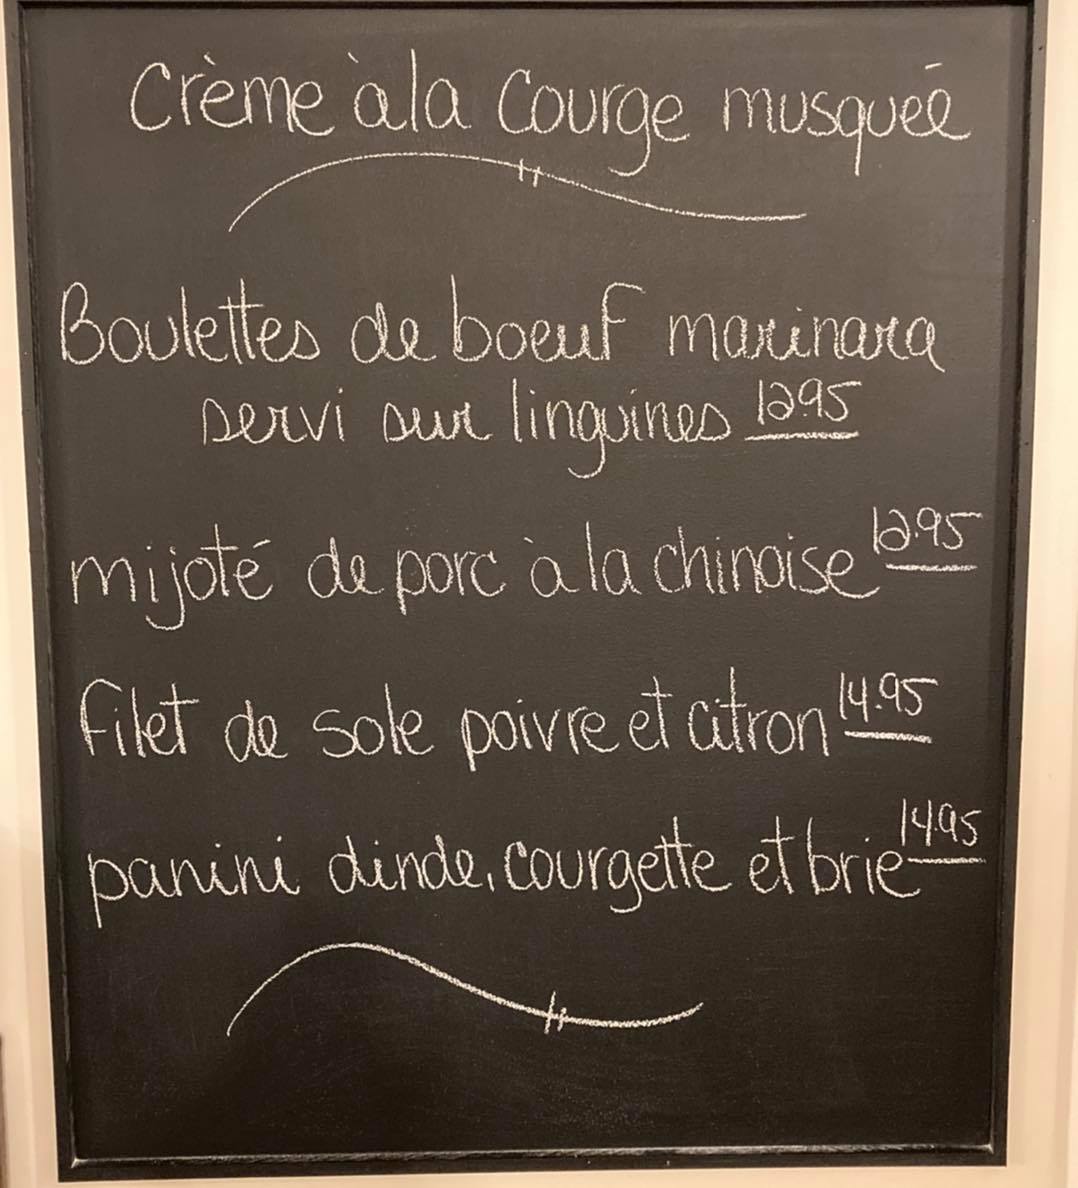 Crème à la Courge musquée
Boulettes de boeuf marinara
servi sur linguines 12.95
mijoté de porc à la chinoise 12.95
Filet de sole poivre et citron 14.95
panini dinde, courgette et brie 14.95